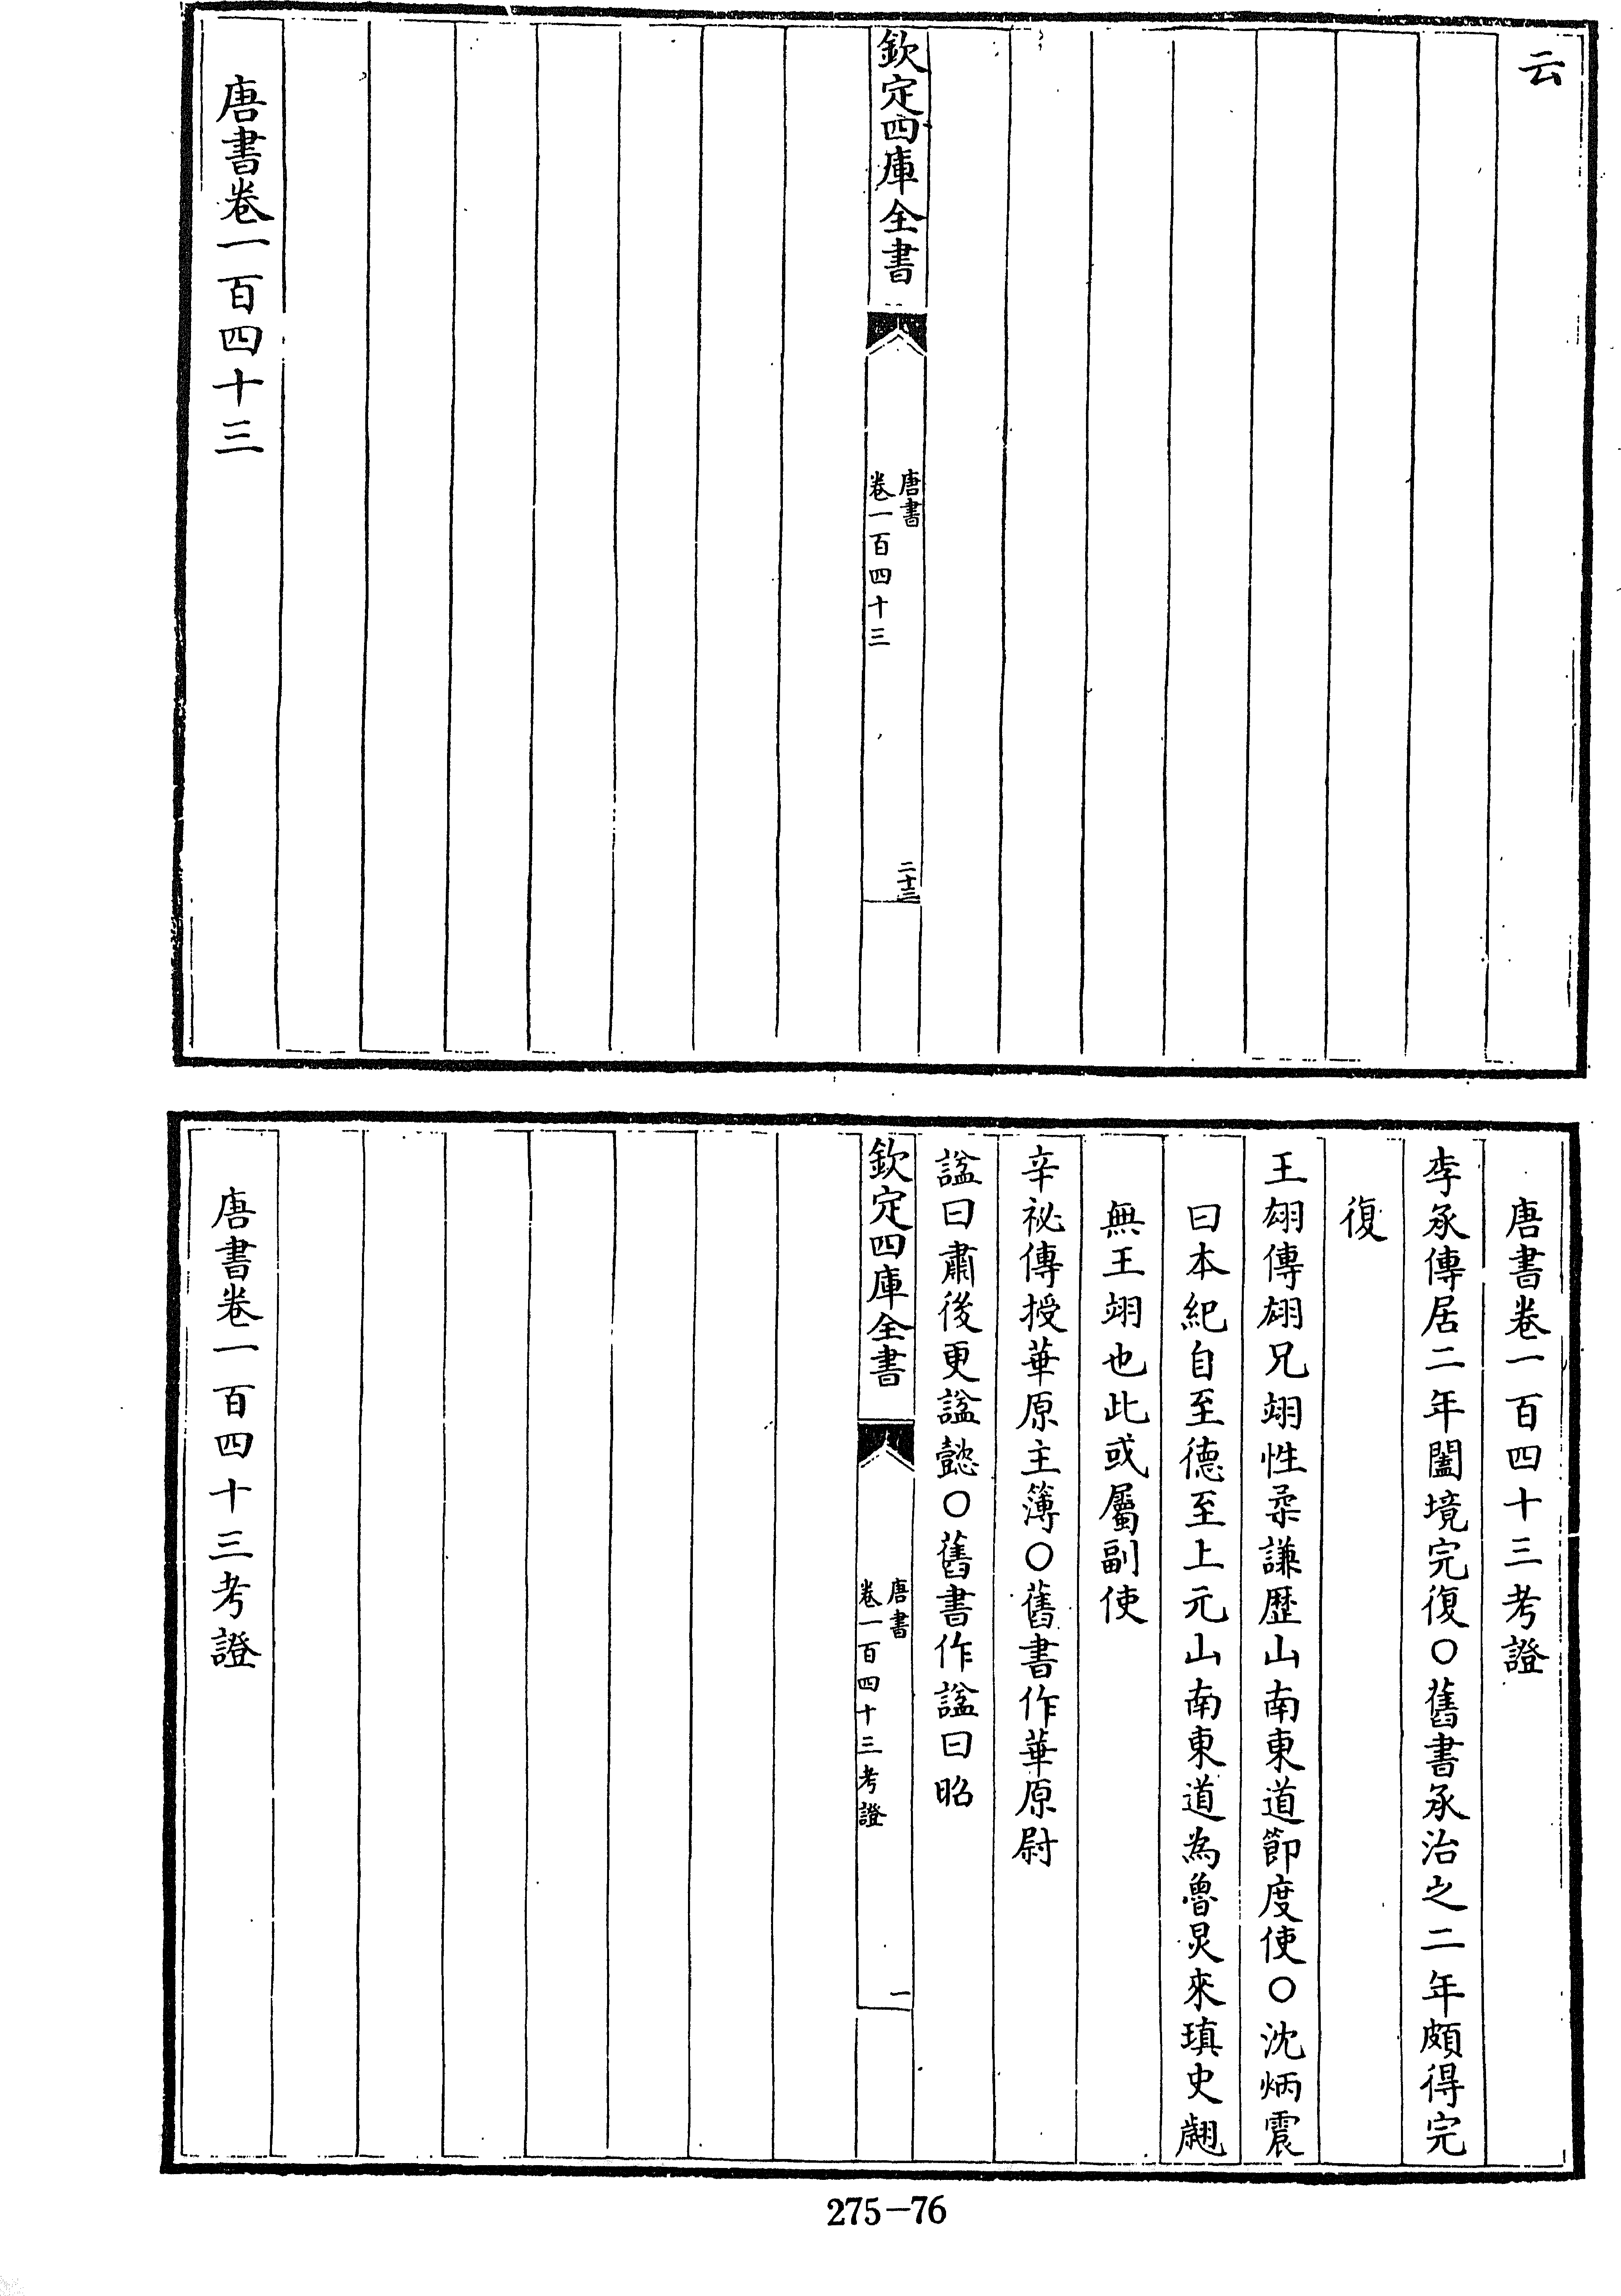 云
欽定四庫全書
唐書
卷一百四十三
二十三
唐書卷一百四十三
唐書卷一百四十三考證
李承傳居二年闔境完復○舊書承治之二年頗得完
復
王翃傳翃兄翊性柔謙歴山南東道節度使○沈炳震
曰本紀自至德至上元山南東道為魯炅來瑱史翽
無王翊也此或屬副使
辛祕傳授華原主簿○舊書作華原尉
諡曰肅後更諡懿○舊書作諡曰昭
欽定四庫全書
唐書
卷一百四十三考證
一
唐書卷一百四十三考證
275-76